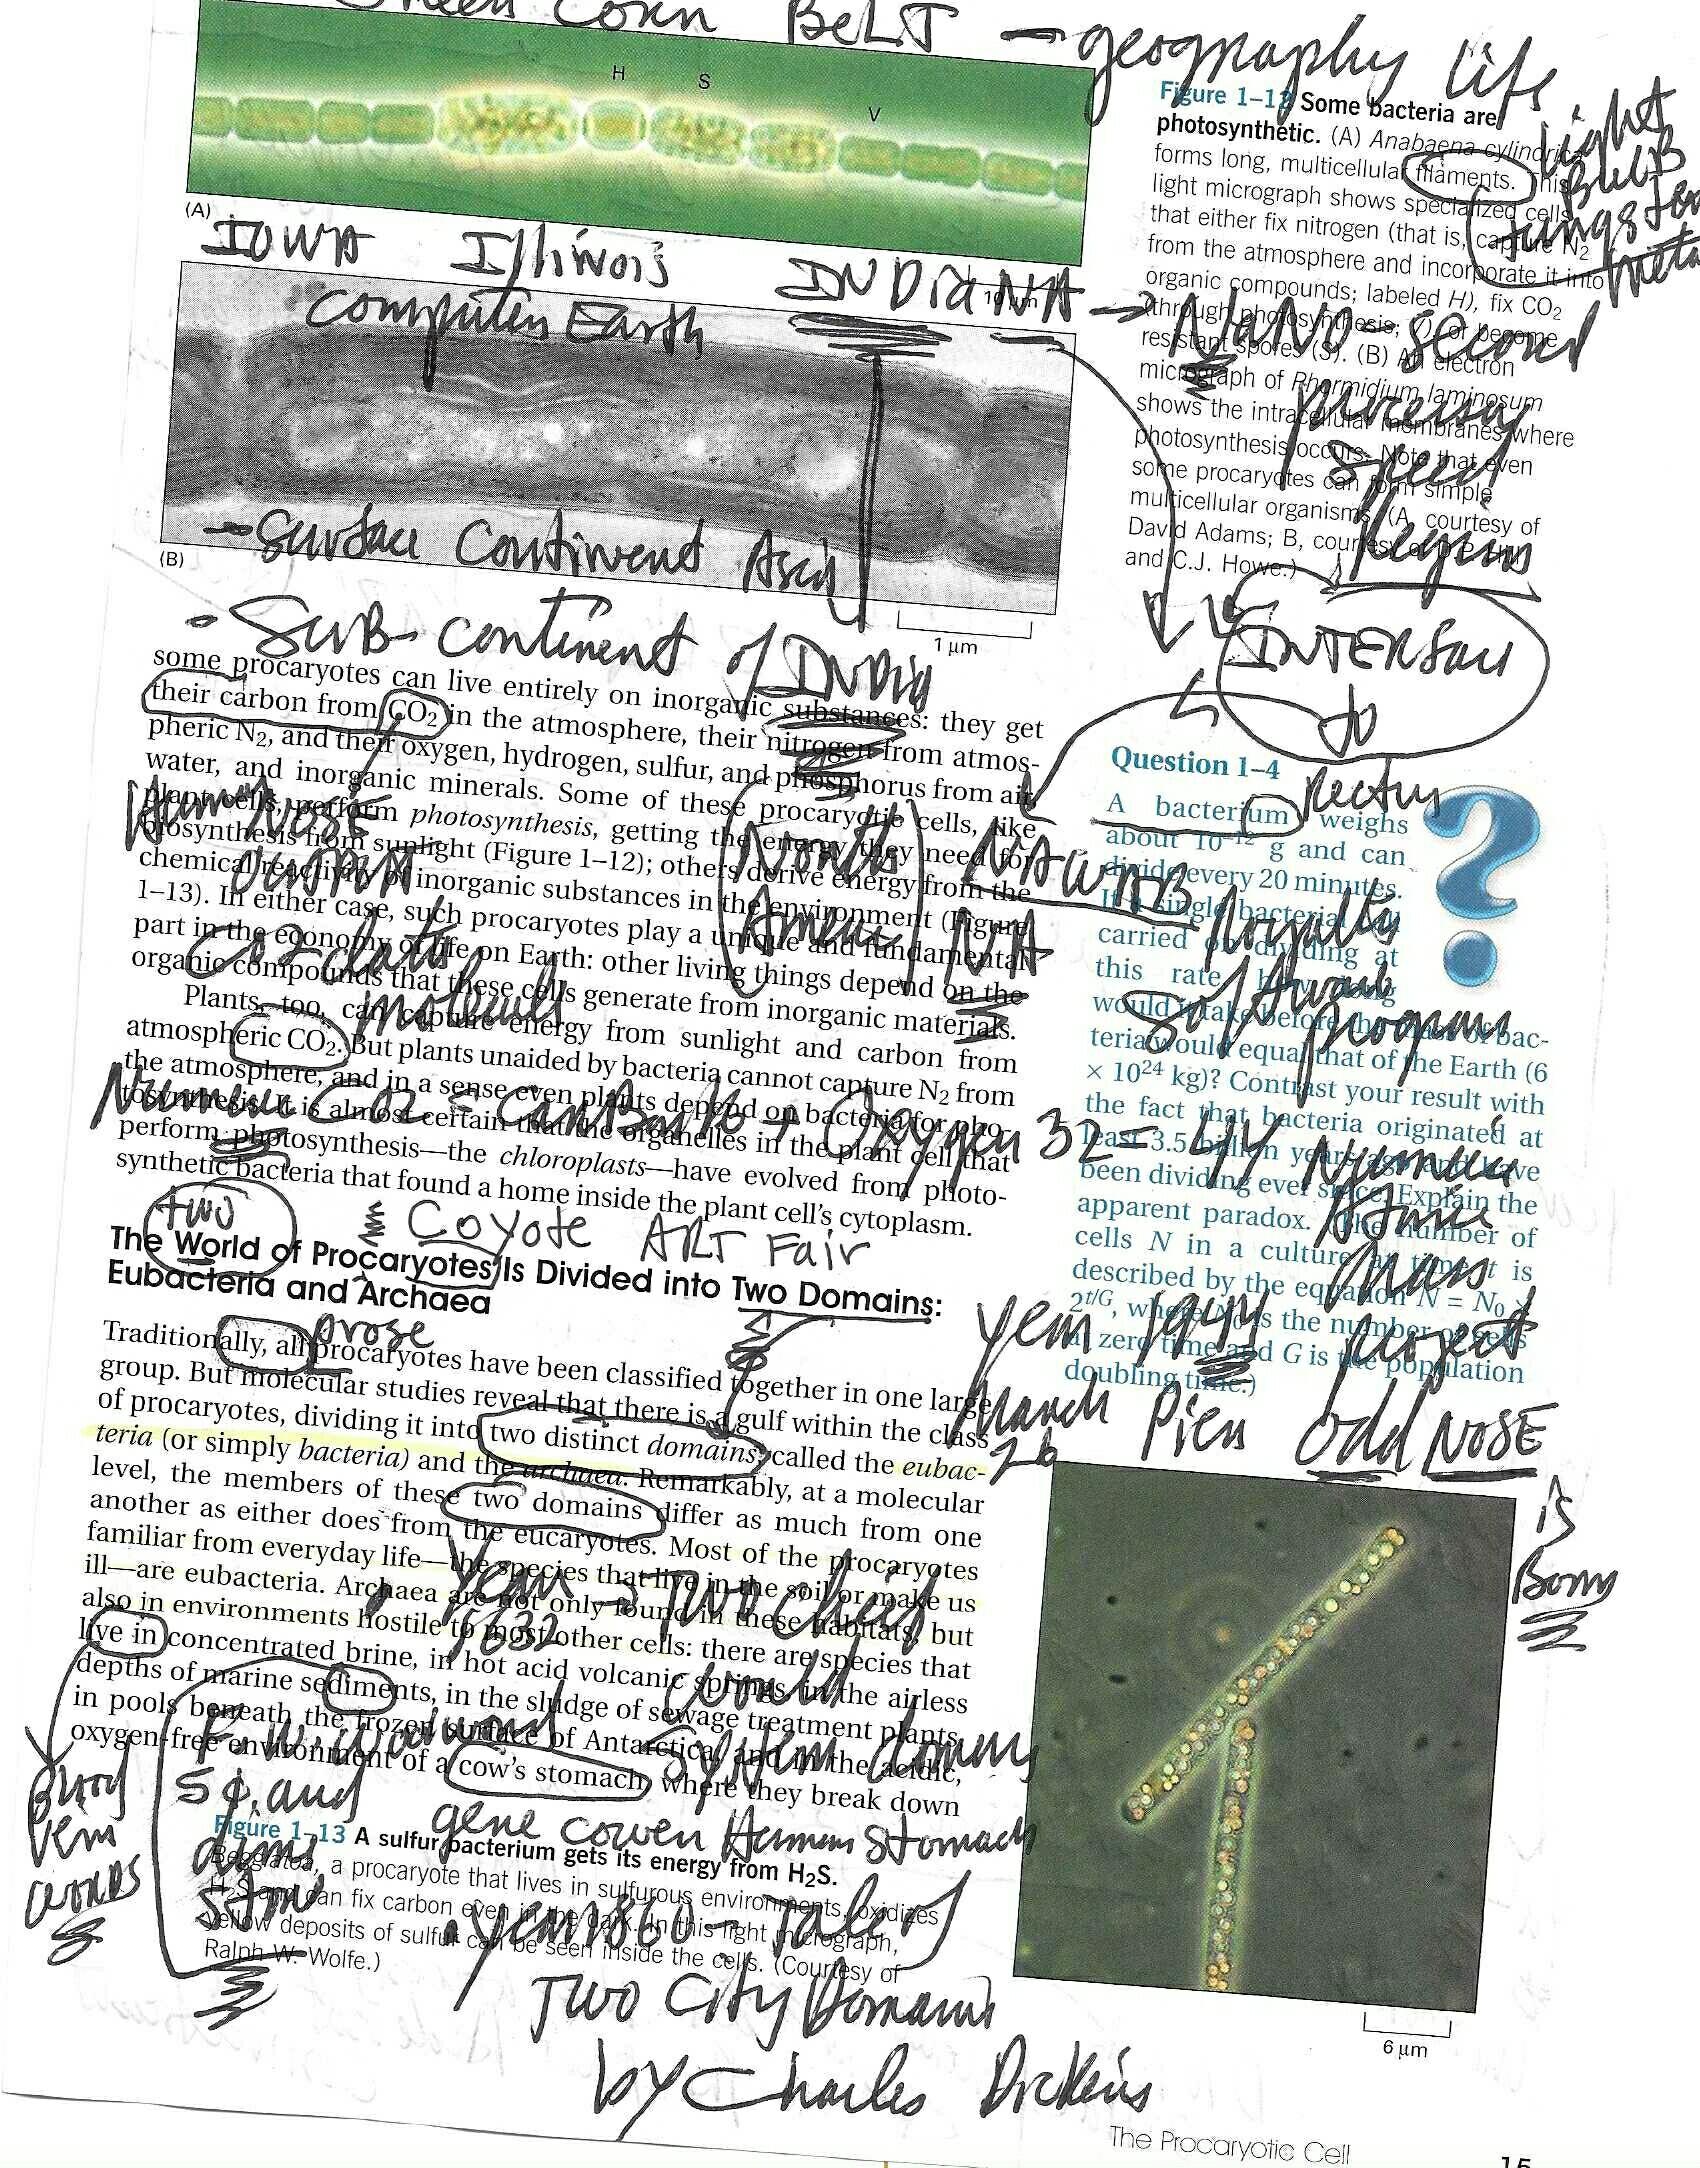 Green Corn BELT → geography life
H
S
V
(A)
Figure 1–12 Some bacteria are
photosynthetic. (A) Anabaena cylindrica
forms long, multicellular filaments. This
light micrograph shows specialized cells
that either fix nitrogen (that is, capture N2
from the atmosphere and incorporate it into
organic compounds; labeled H), fix CO2
(through photosynthesis; V), or become
resistant spores (S). (B) An electron
micrograph of Phormidium laminosum
shows the intracellular membranes where
photosynthesis occurs. Note that even
some procaryotes can form simple
multicellular organisms. (A, courtesy of
David Adams; B, courtesy of
and C.J. Howe.)
Light
BulB
metal
IOWA Illinois INDiaNA → NaNo-second
10 µm
Computer Earth
speed
Regions
Surface Continent
(B)
1 µm
Sub-continent of INDia
INTERSau
to
Rectus
some procaryotes can live entirely on inorganic substances: they get
their carbon from CO2 in the atmosphere, their nitrogen from atmos-
pheric N2, and their oxygen, hydrogen, sulfur, and phosphorus from air,
water, and inorganic minerals. Some of these procaryotic cells, like
plant cells, perform photosynthesis, getting the energy they need for
biosynthesis from sunlight (Figure 1–12); others derive energy from the
chemical reactivity of inorganic substances in the environment (Figure
1–13). In either case, such procaryotes play a unique and fundamental
part in the economy of life on Earth: other living things depend on the
organic compounds that these cells generate from inorganic materials.
Plants, too, can capture energy from sunlight and carbon from
atmospheric CO2. But plants unaided by bacteria cannot capture N2 from
the atmosphere, and in a sense even plants depend on bacteria for pho-
tosynthesis. It is almost certain that the organelles in the plant cell that
perform photosynthesis—the chloroplasts—have evolved from photo-
synthetic bacteria that found a home inside the plant cell's cytoplasm.
Human Nose
CO2 data
molecules
North
NA
Royalty
Software
program
Numeric CO2 = Carbon 12 + Oxygen 32 = 44 Numeric
Atomic
Mass
project
Question 1–4
A bacterium weighs
about 10-12 g and can
divide every 20 minutes.
If a single bacterial cell
carried on dividing at
this rate, how long
would it take before the mass of bac-
teria would equal that of the Earth (6
× 1024 kg)? Contrast your result with
the fact that bacteria originated at
least 3.5 billion years ago and have
been dividing ever since. Explain the
apparent paradox. (The number of
cells N in a culture at time t is
described by the equation N = N0 ×
2t/G, where N0 is the number of cells
at zero time and G is the population
doubling time.)
two
Coyote ART Fair
The World of Procaryotes Is Divided into Two Domains:
Eubacteria and Archaea
prose
year 1944
March 26
Pier Odd NOSE
is
Bony
Traditionally, all procaryotes have been classified together in one large
group. But molecular studies reveal that there is a gulf within the class
of procaryotes, dividing it into two distinct domains called the eubac-
teria (or simply bacteria) and the archaea. Remarkably, at a molecular
level, the members of these two domains differ as much from one
another as either does from the eucaryotes. Most of the procaryotes
familiar from everyday life—the species that live in the soil or make us
ill—are eubacteria. Archaea are not only found in these habitats, but
also in environments hostile to most other cells: there are species that
live in concentrated brine, in hot acid volcanic springs, in the airless
depths of marine sediments, in the sludge of sewage treatment plants,
in pools beneath the frozen surface of Antarctica, and in the acidic,
oxygen-free environment of a cow's stomach where they break down
Year 1632 → Two chief
world
System
F.W. Woodword
5¢ and
dime
store
Blood
Vein
words
gene cowen Human Stomach
Figure 1–13 A sulfur bacterium gets its energy from H2S.
Beggiatoa, a procaryote that lives in sulfurous environments, oxidizes
H2S and can fix carbon even in the dark. In this light micrograph,
yellow deposits of sulfur can be seen inside the cells. (Courtesy of
Ralph W. Wolfe.)
year 1860 - Tale of
Two City Domains
by Charles Dickens
6 µm
The Procaryotic Cell
15